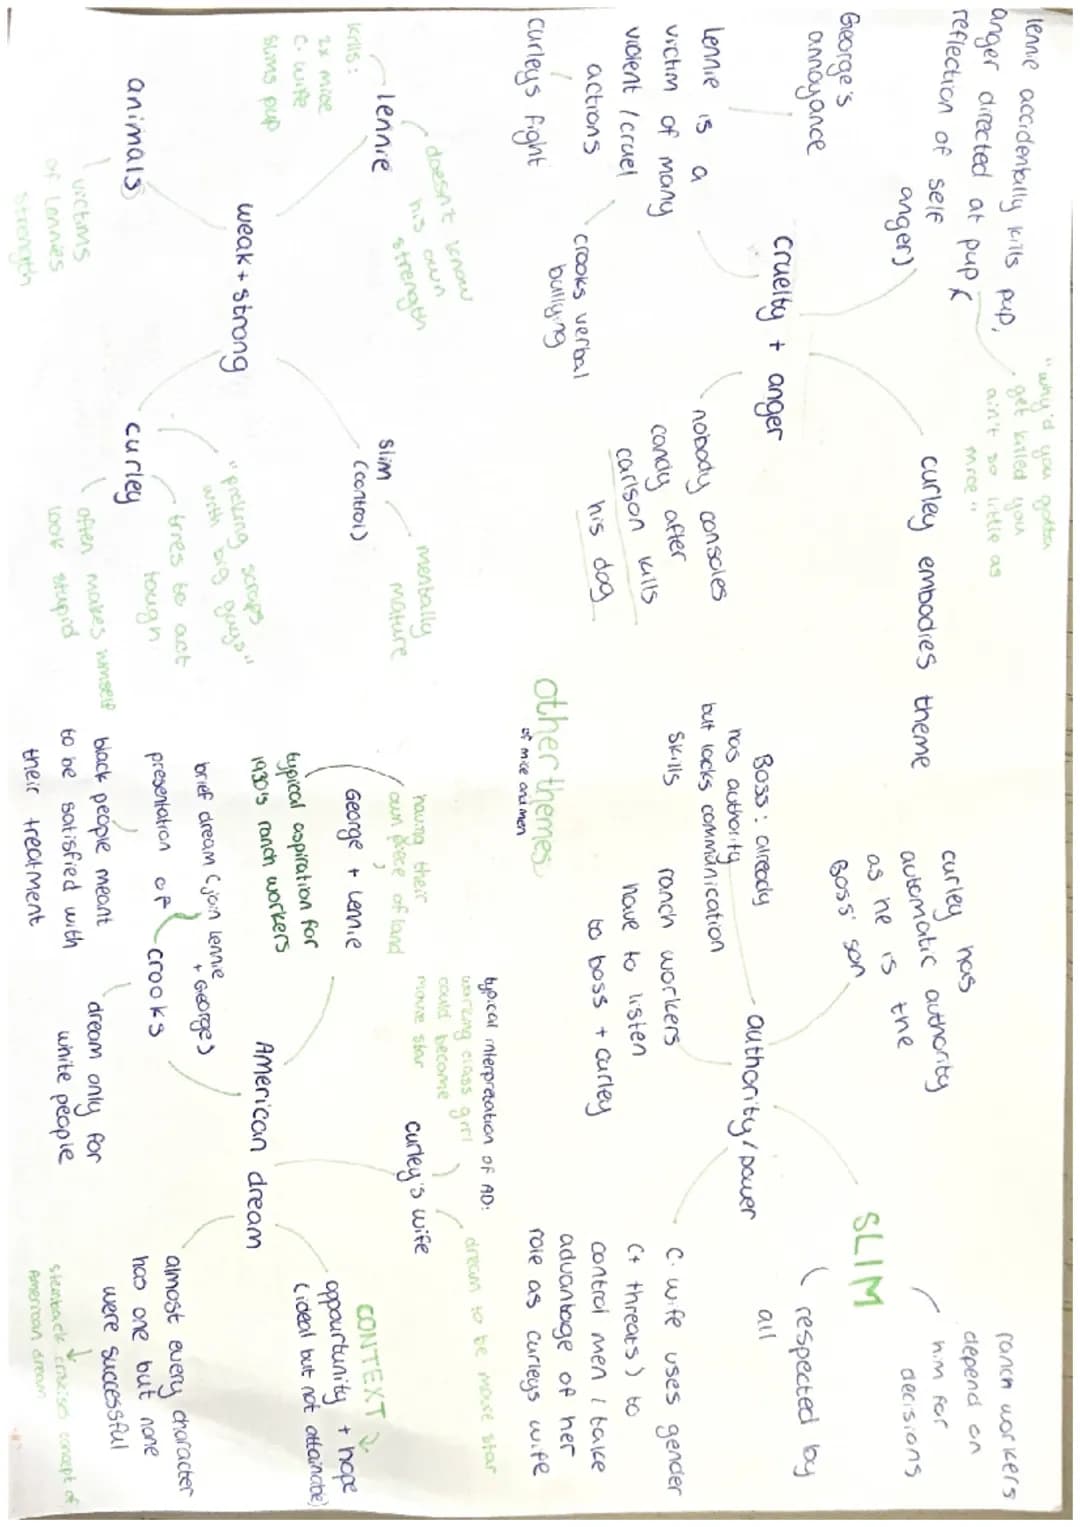 other themes
of mice and men
cruelty + anger
lennie accidentally kills pup,
anger directed at pup (
reflection of self
anger)
"why'd you gotten
get killed you
ain't so little as
mice"
George's
annoyance
Lennie is a
victim of many
violent / cruel
actions
curleys fight
crooks verbal
bullying
nobody consoles
candy after
carlson kills
his dog
curley embodies theme
authority / power
curley has
automatic authority
as he is the
Boss' son
Boss: already
has authority
but lacks communication
skills
ranch workers
have to listen
to boss + curley
SLIM
respected by
all
ranch workers
depend on
him for
decisions
C. wife uses gender
(+ threats) to
control men / take
advantage of her
role as curleys wife
weak + strong
lennie
doesn't know
his own
strength
kills:
2x mice
C. wife
slims pup
animals
victims
of Lennies
strength
slim
(control)
mentally
mature
curley
"picking scraps
with big guys"
tries to act
tough
often makes himself
look stupid
American dream
George + Lennie
having their
own piece of land
typical aspiration for
1930's ranch workers
crooks
brief dream (join lennie
+ George)
presentation of
black people meant
to be satisfied with
their treatment
dream only for
white people
curley's wife
typical interpretation of AD:
working class girl
could become
movie star
dream to be movie star
CONTEXT
oppourtunity + hope
(ideal but not attainable)
almost every character
has one but none
were successful
concept of
American dream